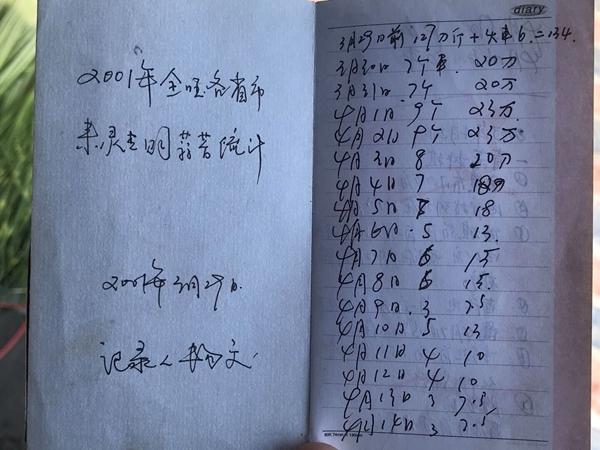 2001年全国各省市
来灵、明蒜苔统计
2001年3月29日
记录人
diary
3月29日前 127万斤+火车6.=134.
3月30日 7个车. 20万
3月31日 7个 20万
4月1日 9个 23万
4月2日 9个 23万
4月3日 8 20万
4月4日 7 18万
4月5日 18
4月6日.5 13.
4月7日 6 15
4月8日 6 15.
4月9日.3 7.5
4月10日 5 13
4月11日 4 10
4月12日 4 10
4月13日 3 7.5
4月14日 3 7.5